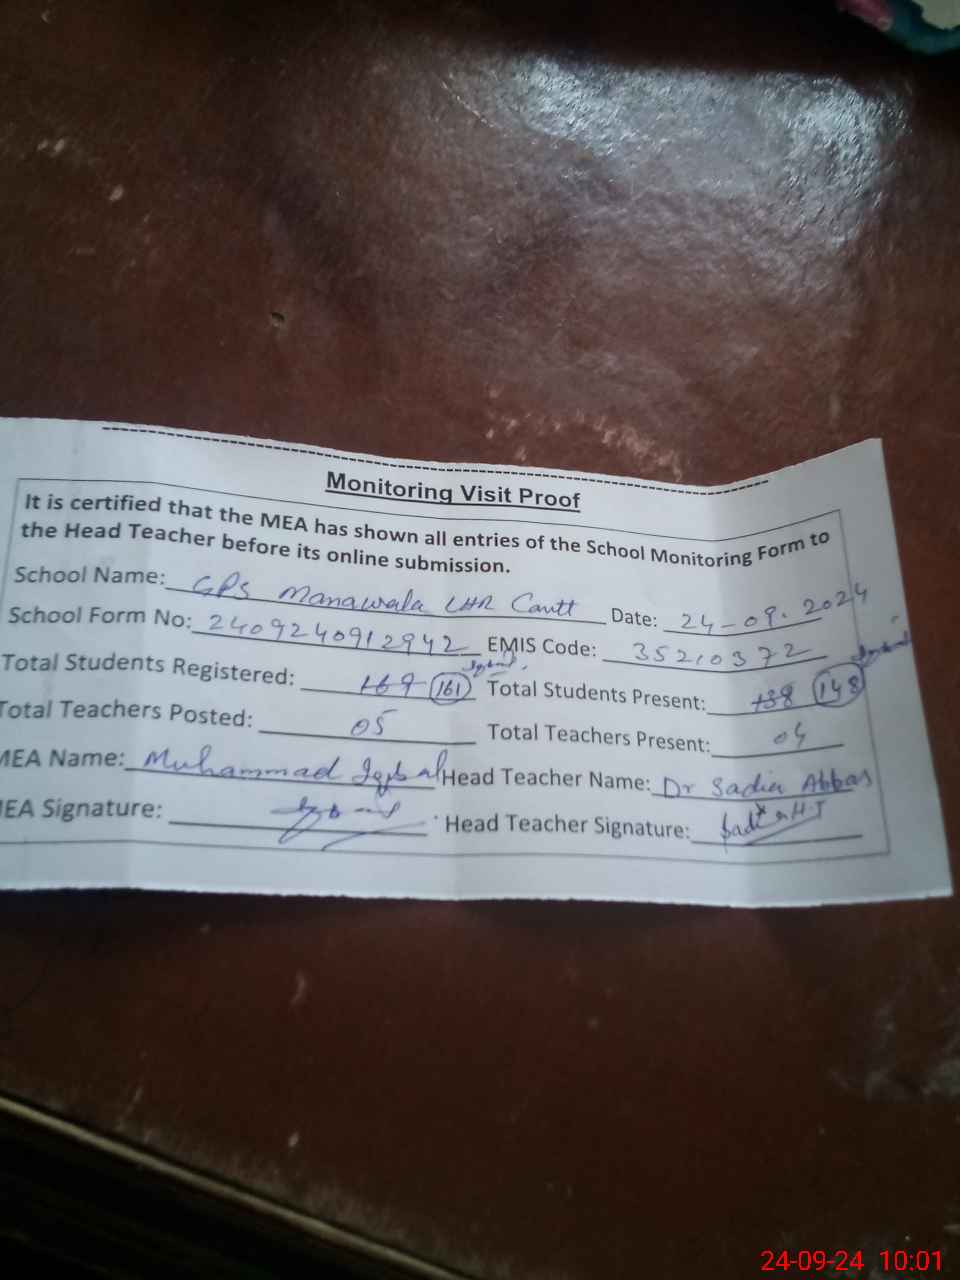 Monitoring Visit Proof
It is certified that the MEA has shown all entries of the School Monitoring Form to
the Head Teacher before its online submission.
School Name: GPS Manawala LHR Cantt Date: 24-09-2024
School Form No: 2409240912942 EMIS Code: 35210372
Total Students Registered: 169 161 Total Students Present: 138 148
Total Teachers Posted: 05 Total Teachers Present: 04
MEA Name: Muhammad Iqbal Head Teacher Name: Dr Sadia Abbas
MEA Signature: Iqbal Head Teacher Signature:
24-09-24 10:01